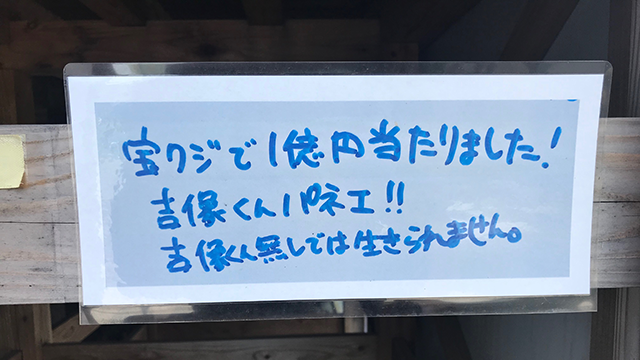 宝クジで1億円当たりました!
吉像くんパネエ!!
吉像くん無しでは生きられません。